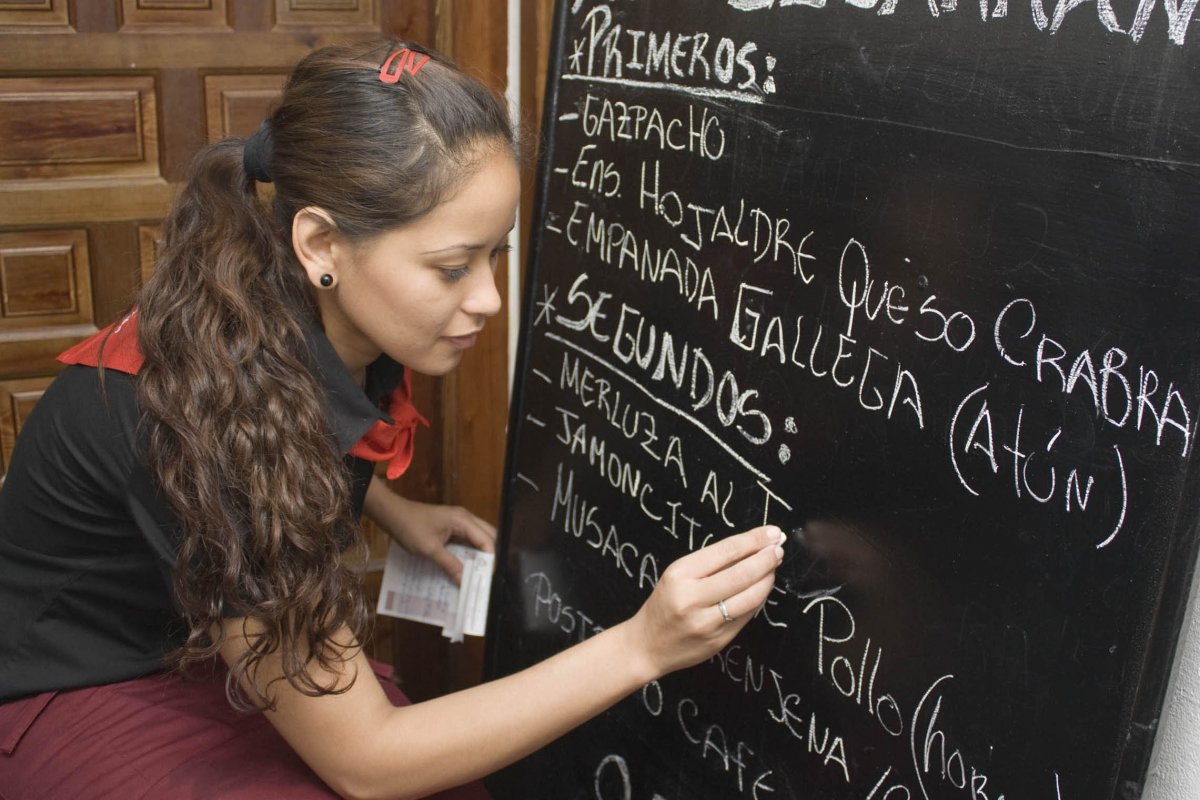 *PRIMEROS:
-GAZPACHO
-Ens. HOJALDRE QUESO CRABRA
-EMPANADA GALLEGA (Atún)
*SEGUNDOS:
- MERLUZA AL T
- JAMONCIT Pollo
- MUSACA RENJENA
POST O CAFE